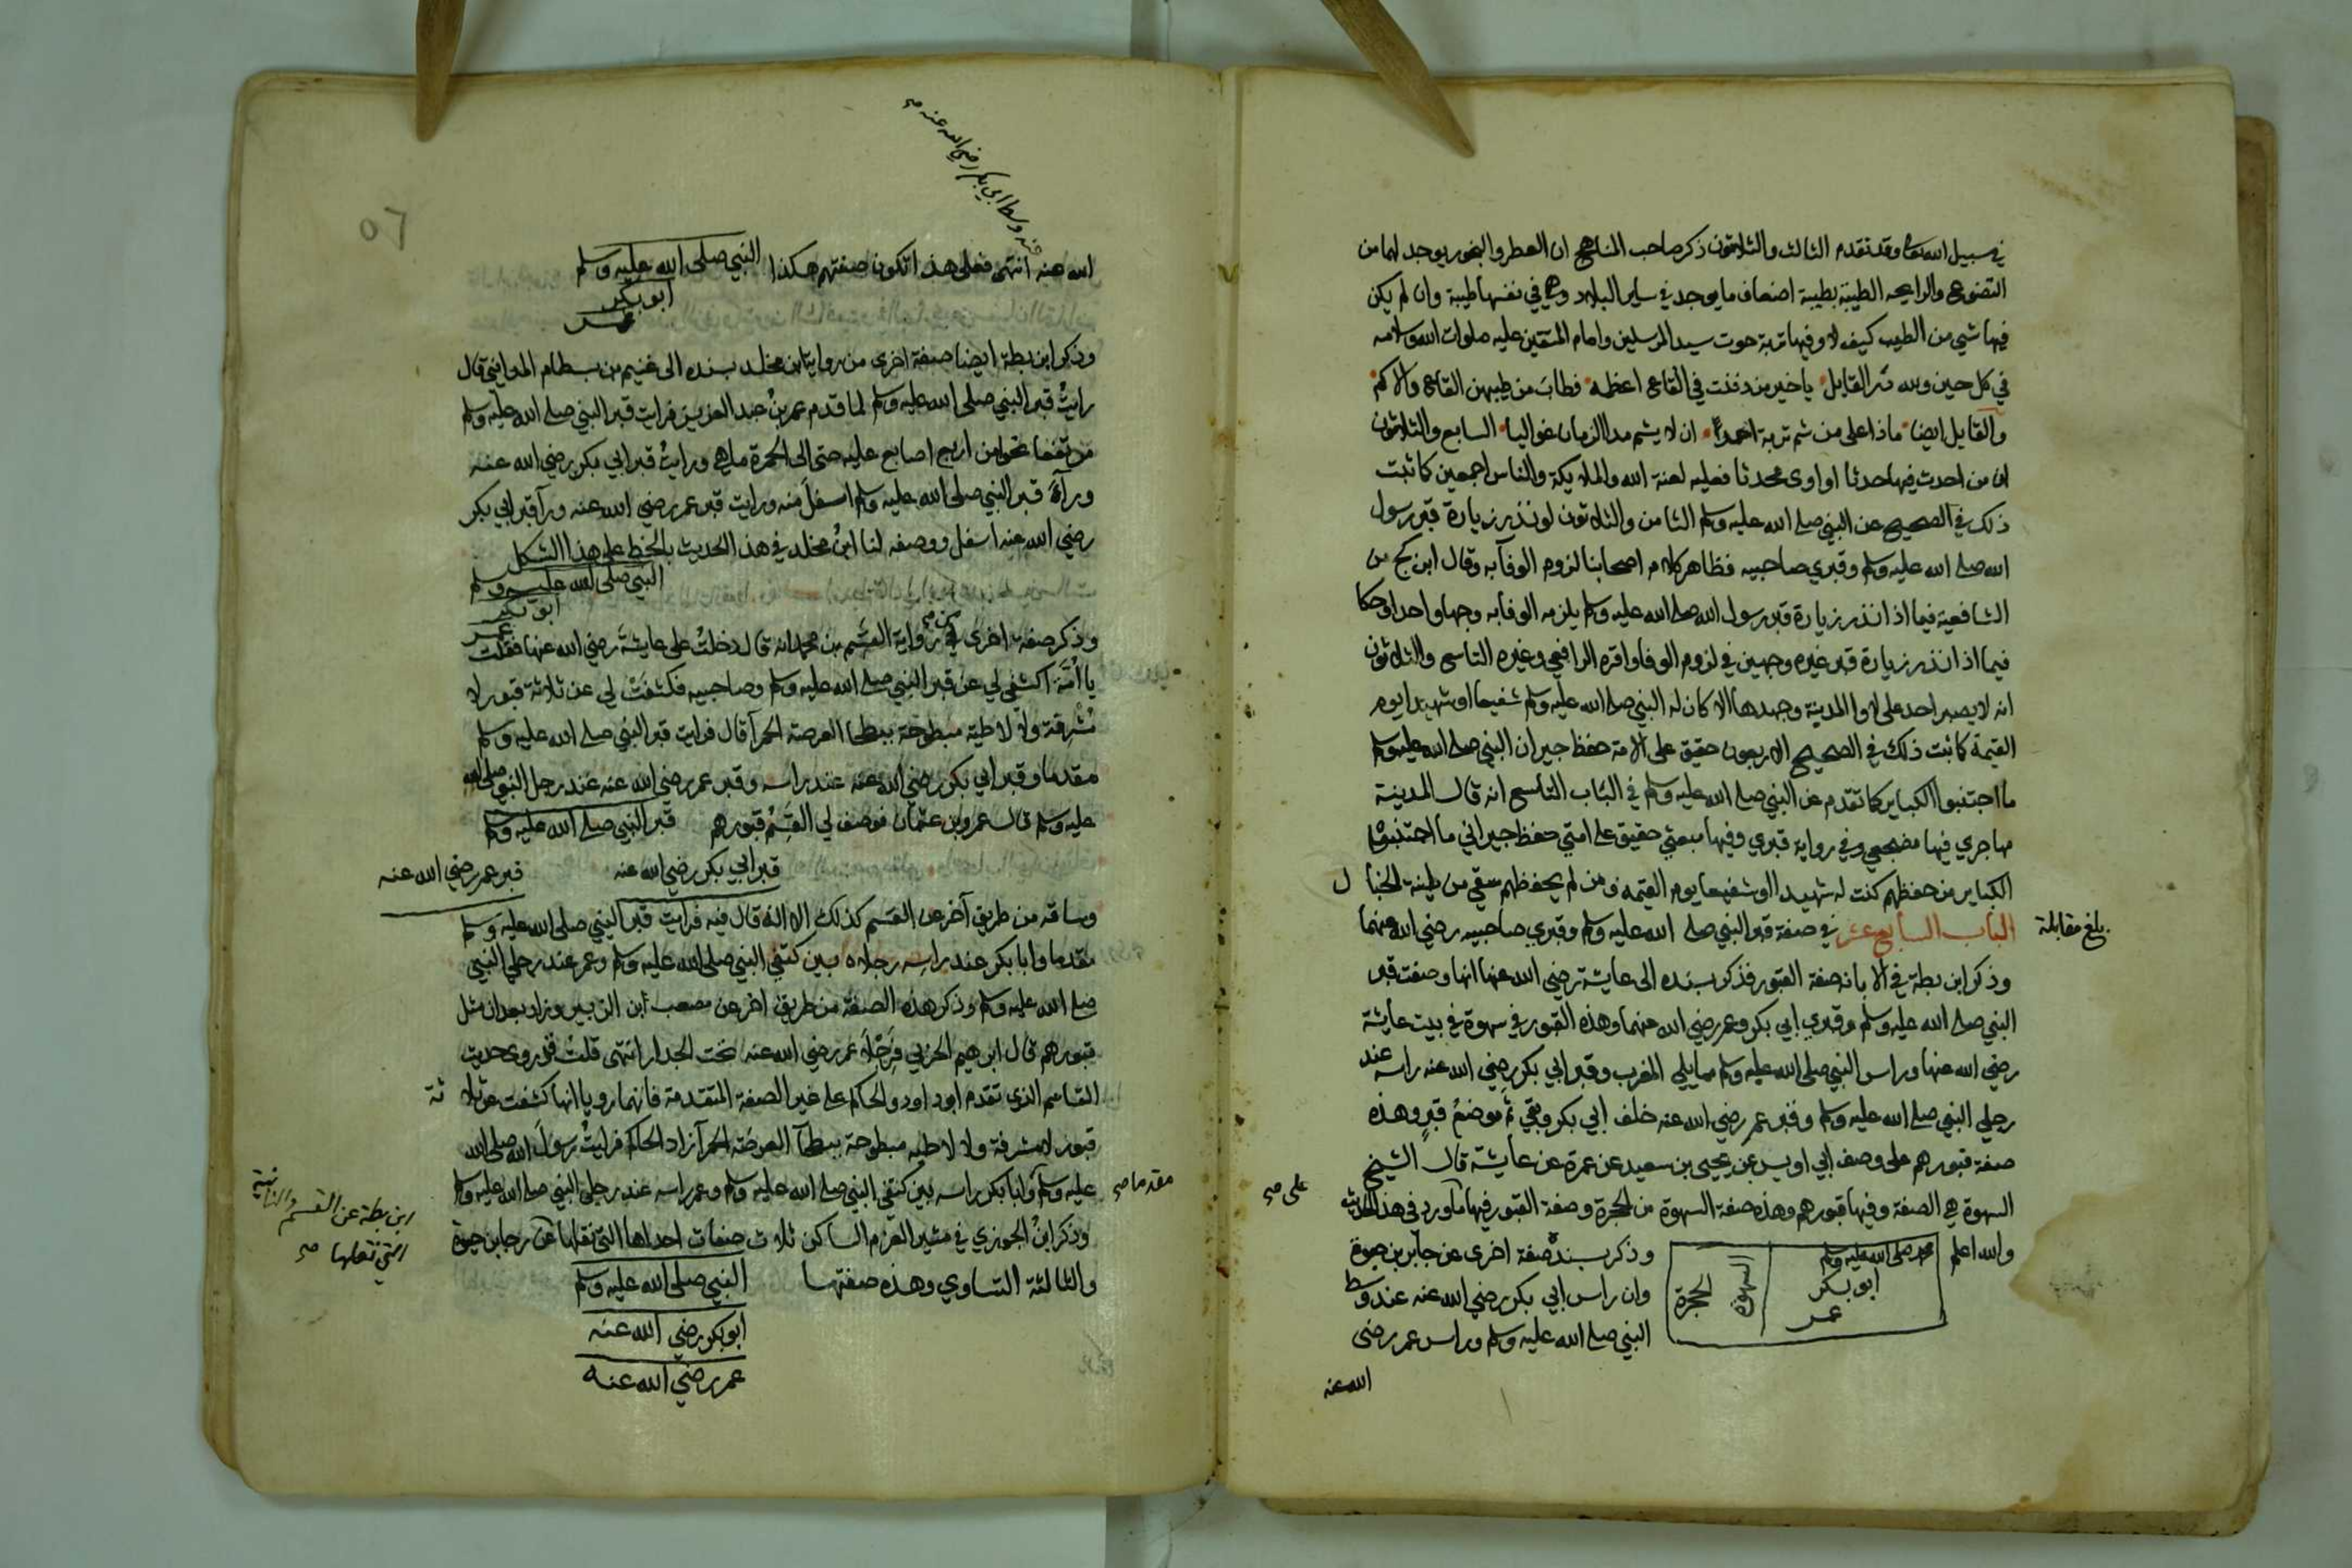 في سبيل الله تعالى وقد تقدم الثالث والثلاثون ذكر صاحب المناهج ان العطر والبخور يوجد لهما من
التضوع والرايحه الطيبة بطيبة اضعاف ما يوجد في ساير البلاد وهي في نفسها طيبة وان لم يكن
فيها شي من الطيب كيف لا وفيها تربة حوت سيد المرسلين وامام المتقين عليه صلوات الله وسلامه
في كل حين ولله در القايل يا خير من دفنت في القاع اعظمه فطاب من طيبهن القاع والاكم
والقايل ايضا ماذا على من شم تربة احمد ان لا يشم مدا الزمان غواليا السابع والثلاثون
ان من احدث فيها حدثا او اوى محدثا فعليه لعنة الله والملايكة والناس اجمعين كما ثبت
ذلك في الصحيح عن النبي صلى الله عليه وسلم الثامن والثلاثون لو نذر زيارة قبر رسول
الله صلى الله عليه وسلم وقبري صاحبيه فظاهر كلام اصحابنا لزوم الوفآ به وقال ابن كج من
الشافعية فيما اذا نذر زيارة قبر رسول الله صلى الله عليه وسلم يلزمه الوفا به وجها واحدا وحكا
فيما اذا نذر زيارة قبر غيره وجهين في لزوم الوفا واقره الرافعي وغيره التاسع والثلاثون
انه لا يصبر احد على لاوا المدينة وجهدها الا كان له النبي صلى الله عليه وسلم شفيعا او شهيدا يوم
القيمة كما ثبت ذلك في الصحيح الاربعون حقيق على الامة حفظ جيران النبي صلى الله عليه وسلم
ما اجتنبوا الكباير كما تقدم عن النبي صلى الله عليه وسلم في الباب التاسع انه قال المدينة
مهاجري فيها مضجعي وفي رواية قبري وفيها مبعثي حقيق على امتي حفظ جيراني ما اجتنبوا
الكباير من حفظهم كنت له شهيدا او شفيعا يوم القيمة ومن لم يحفظهم سقي من طينة الخبا ل
الباب السابع عشر في صفة قبر النبي صلى الله عليه وسلم وقبري صاحبيه رضي الله عنهما
بلغ مقابلة
وذكر ابن بطة في الابانه صفة القبور فذكر بسنده الى عايشة رضي الله عنها انها وصفت قبر
النبي صلى الله عليه وسلم وقبري ابي بكر وعمر رضي الله عنهما وهذه القبور في سهوة في بيت عايشة
رضي الله عنها وراس النبي صلى الله عليه وسلم مما يلي المغرب وقبر ابي بكر رضي الله عنه راسه عند
رجلي النبي صلى الله عليه وسلم وقبر عمر رضي الله عنه خلف ابي بكر وبقي ثم موضع قبر وهذه
صفة قبورهم على وصف ابي اويس عن يحيى بن سعيد عن عمرة عن عايشة قال الشيخ
السهوة هي الصفة وفيها قبورهم وهذه صفة السهوة من الحجرة وصفة القبور فيها ما ورد في هذا الحديث
على صح
والله اعلم
محمد صلى الله عليه وسلم
ابو بكر
عمر
السهوة
الحجرة
وذكر بسنده صفة اخرى عن جابر بن حيوة
وان راس ابي بكر رضي الله عنه عند وسط
النبي صلى الله عليه وسلم وراس عمر رضى
الله عنه
٥٦
وسط ابي بكر رضي الله عنه صح
الله عنه انتهى فعلى هذا تكون صفتهم هكذا النبي صلى الله عليه وسلم
ابو بكر
عمر
وذكر ابن بطة ايضا صفة اخرى من رواية ابن مخلد بسنده الى غنيم بن بسطام المدايني قال
رايت قبر النبي صلى الله عليه وسلم لما قدم عمر بن عبد العزيز فرايت قبر النبي صلى الله عليه وسلم
مرتفعا نحوا من اربع اصابع عليه حتى الى الحمرة ما هي ورايت قبر ابي بكر رضي الله عنه
ورآء قبر النبي صلى الله عليه وسلم اسفل منه ورايت قبر عمر رضي الله عنه ورآ قبر ابي بكر
رضي الله عنه اسفل ووصفه لنا ابن مخلد في هذا الحديث بالخط على هذا الشكل
النبي صلى الله عليه وسلم
ابو بكر
عمر
وذكر صفة اخرى من رواية القسم بن محمد انه قال دخلت على عايشة رضي الله عنها فقلت
يا امة اكشفي لي عن قبر النبي صلى الله عليه وسلم وصاحبيه فكشفت لي عن ثلاثة قبور لا
مشرفة ولا لاطية مبطوحة ببطحا العرصة الحمرآ قال فرايت قبر النبي صلى الله عليه وسلم
مقدما وقبر ابي بكر رضي الله عنه عند راسه وقبر عمر رضي الله عنه عند رجل النبي صلى الله
عليه وسلم قال عمرو بن عثمان فوصف لي القسم قبورهم قبر النبي صلى الله عليه وسلم
قبر ابي بكر رضي الله عنه
قبر عمر رضي الله عنه
وساقه من طريق آخر عن القسم كذلك الا انه قال فيه فرايت قبر النبي صلى الله عليه وسلم
مقدما وابا بكر عند راسه رجلاه بين كتفي النبي صلى الله عليه وسلم وعمر عند رجلي النبي
صلى الله عليه وسلم وذكر هذه الصفة من طريق اخر عن مصعب ابن الزبير وزاد بعد ان مثل
قبورهم قال ابرهيم الحربي فرجلا عمر رضي الله عنه تحت الجدار انتهى قلت قد روى حديث
القاسم الذي تقدم ابو داود والحاكم على غير الصفة المتقدمة فانهما رويا انها كشفت عن ثلا ثة
قبور لا مشرفة ولا لاطيه مبطوحة ببطحآ العرصة الحمرآ زاد الحاكم فرايت رسول الله صلى الله
مقدما صح
عليه وسلم وابا بكر راسه بين كتفي النبي صلى الله عليه وسلم وعمر راسه عند رجلي النبي صلى الله عليه وسلم
وذكر ابن الجوزي في مثير الغرام الساكن ثلاث صفات احداها التي نقلها عن رجا بن حيوة
والثانية
ابن بطة عن القسم
التي نقلها صح
والثالثة التساوي وهذه صفتها النبي صلى الله عليه وسلم
ابو بكر رضي الله عنه
عمر رضي الله عنه